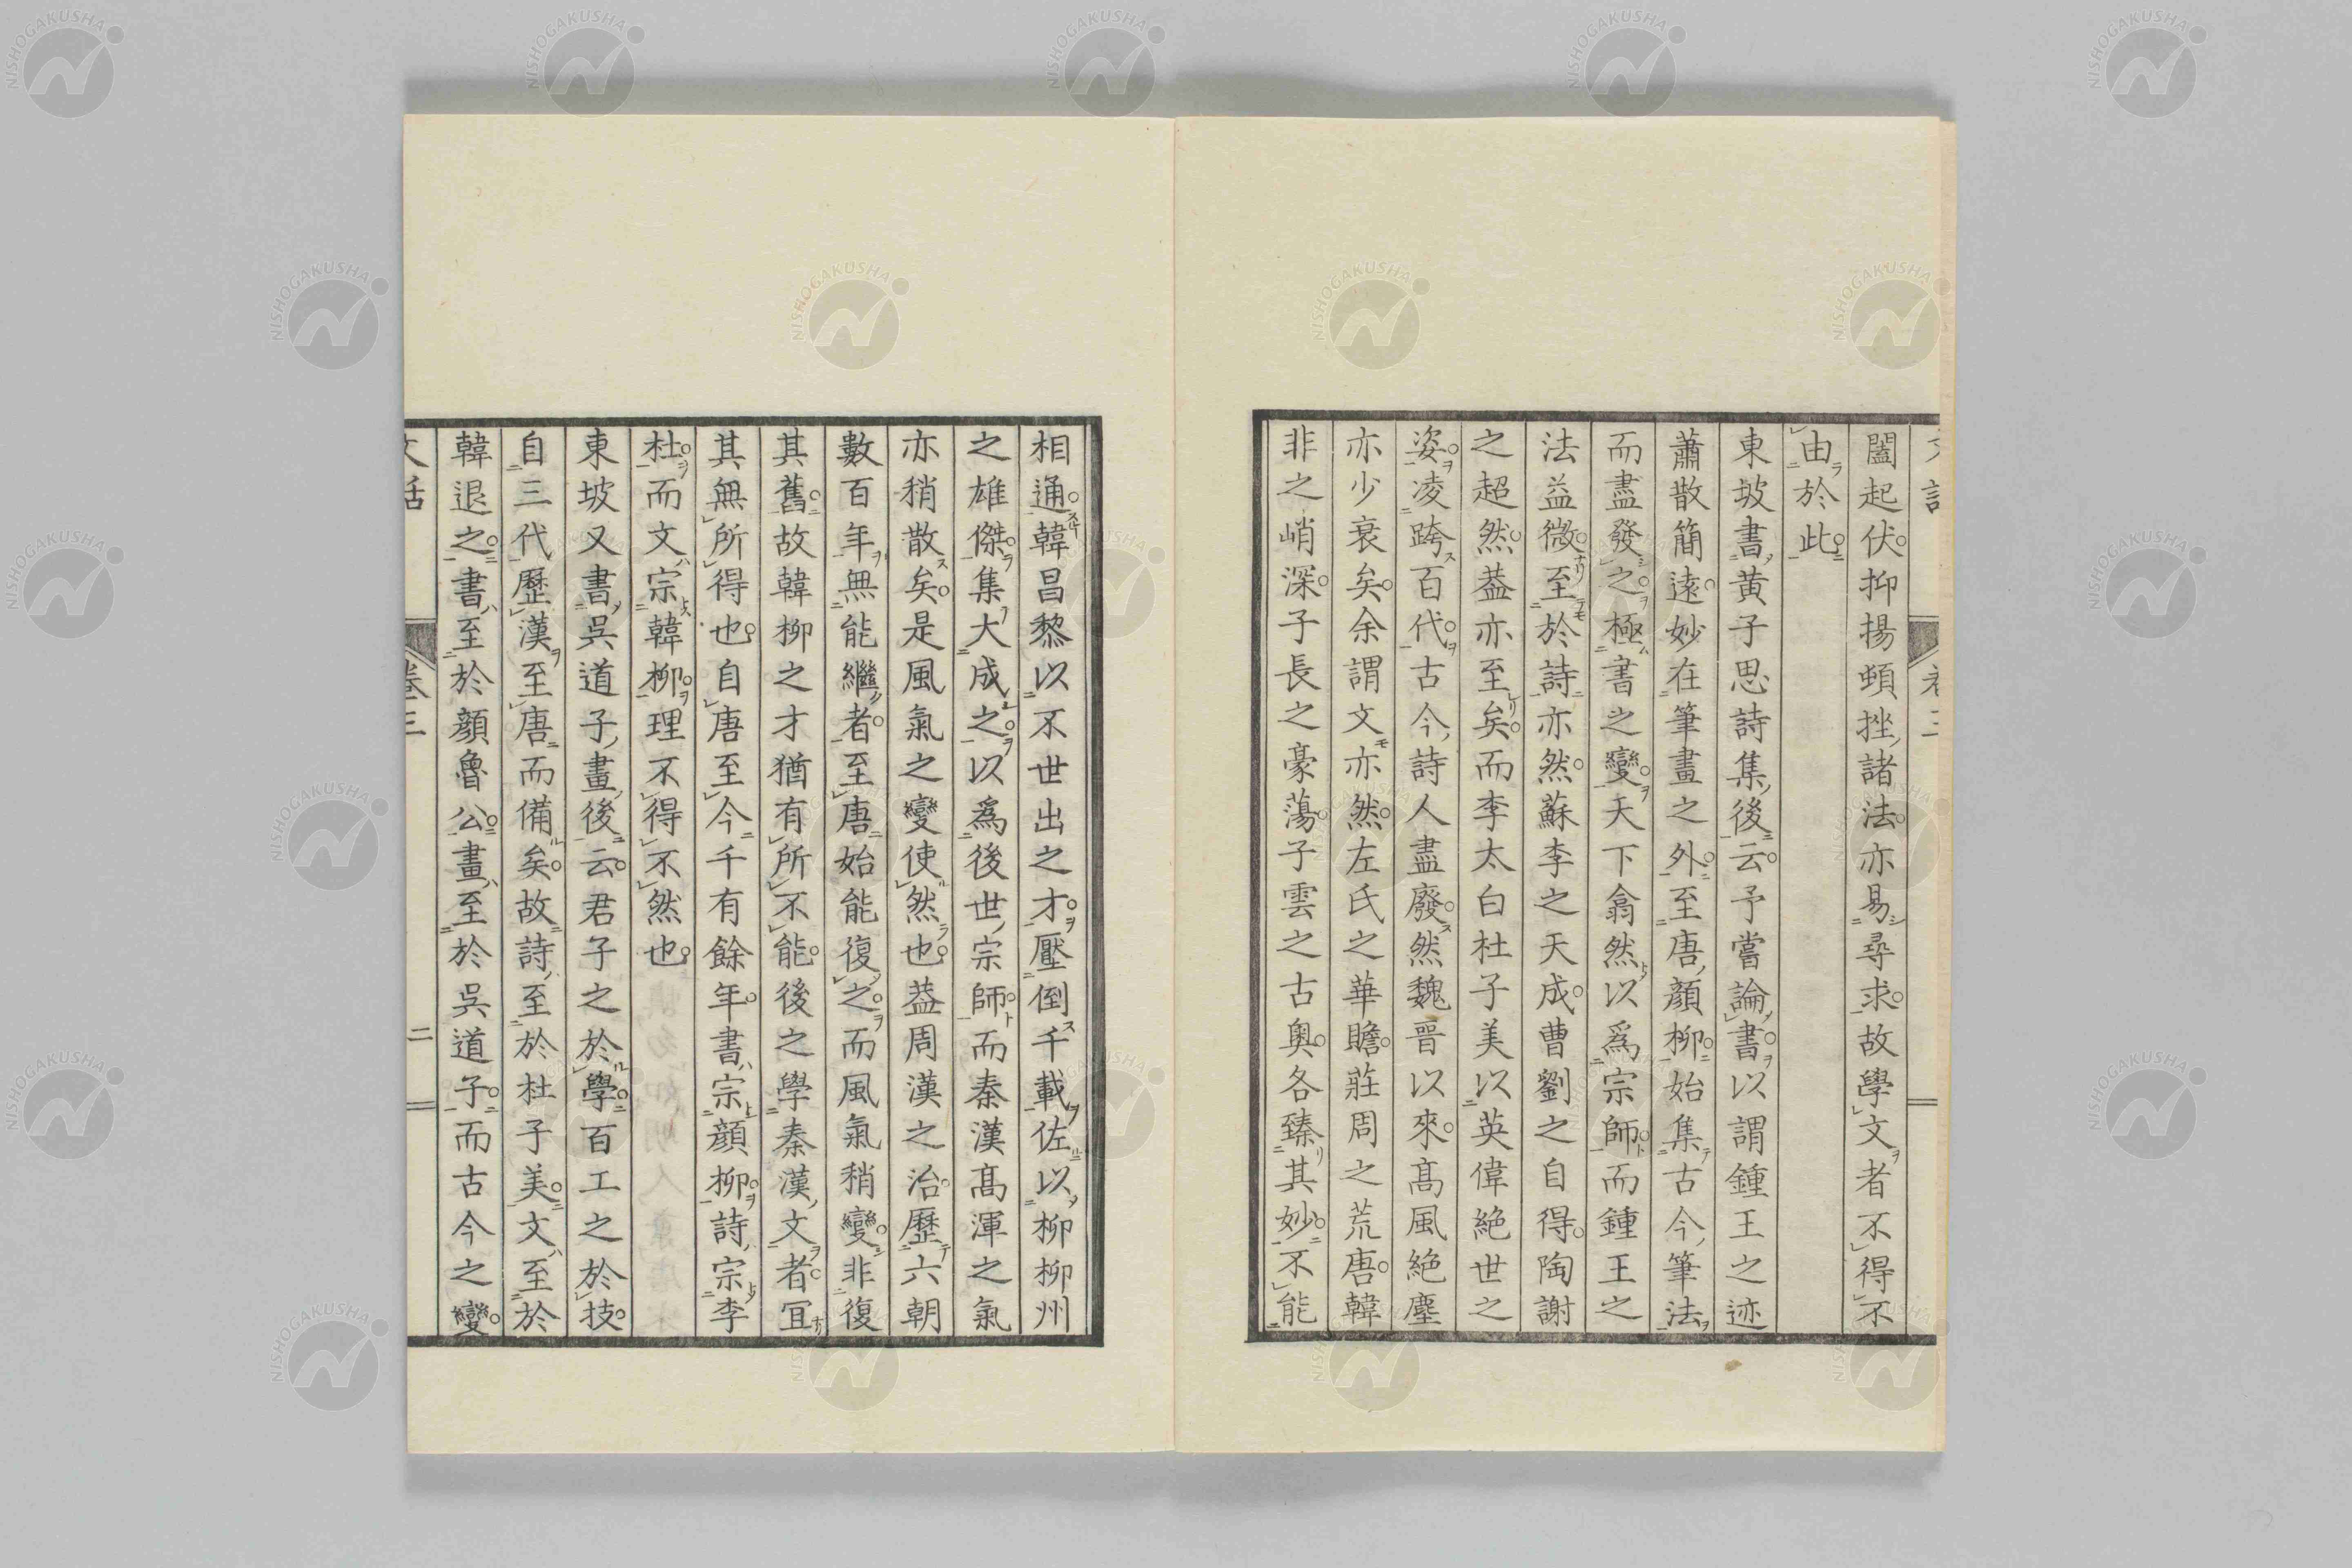 闔起伏抑揚頓挫諸法亦易尋求故學文者不得不
由於此
東坡書黄子思詩集後云予嘗論書以謂鍾王之迹
蕭散簡遠妙在筆畫之外至唐顔柳始集古今筆法
而盡發之極書之變天下翕然以爲宗師而鍾王之
法益微至於詩亦然蘇李之天成曹劉之自得陶謝
之超然葢亦至矣而李太白杜子美以英偉絶世之
姿凌跨百代古今詩人盡廢然魏晉以來髙風絶塵
亦少衰矣余謂文亦然左氏之華贍莊周之荒唐韓
非之峭深子長之豪蕩子雲之古奧各臻其妙不能
相通韓昌黎以不世出之才壓倒千載佐以柳柳州
之雄傑集大成之以爲後世宗師而秦漢髙渾之氣
亦稍散矣是風氣之變使然也葢周漢之治歷六朝
數百年無能繼者至唐始能復之而風氣稍變非復
其舊故韓柳之才猶有所不能後之學秦漢文者宜
其無所得也自唐至今千有餘年書宗顔柳詩宗李
杜而文宗韓柳理不得不然也
東坡又書呉道子畫後云君子之於學百工之於技
自三代歷漢至唐而備矣故詩至於杜子美文至於
韓退之書至於顔魯公畫至於呉道子而古今之變
文話
卷三
二
NISHOGAKUSHA